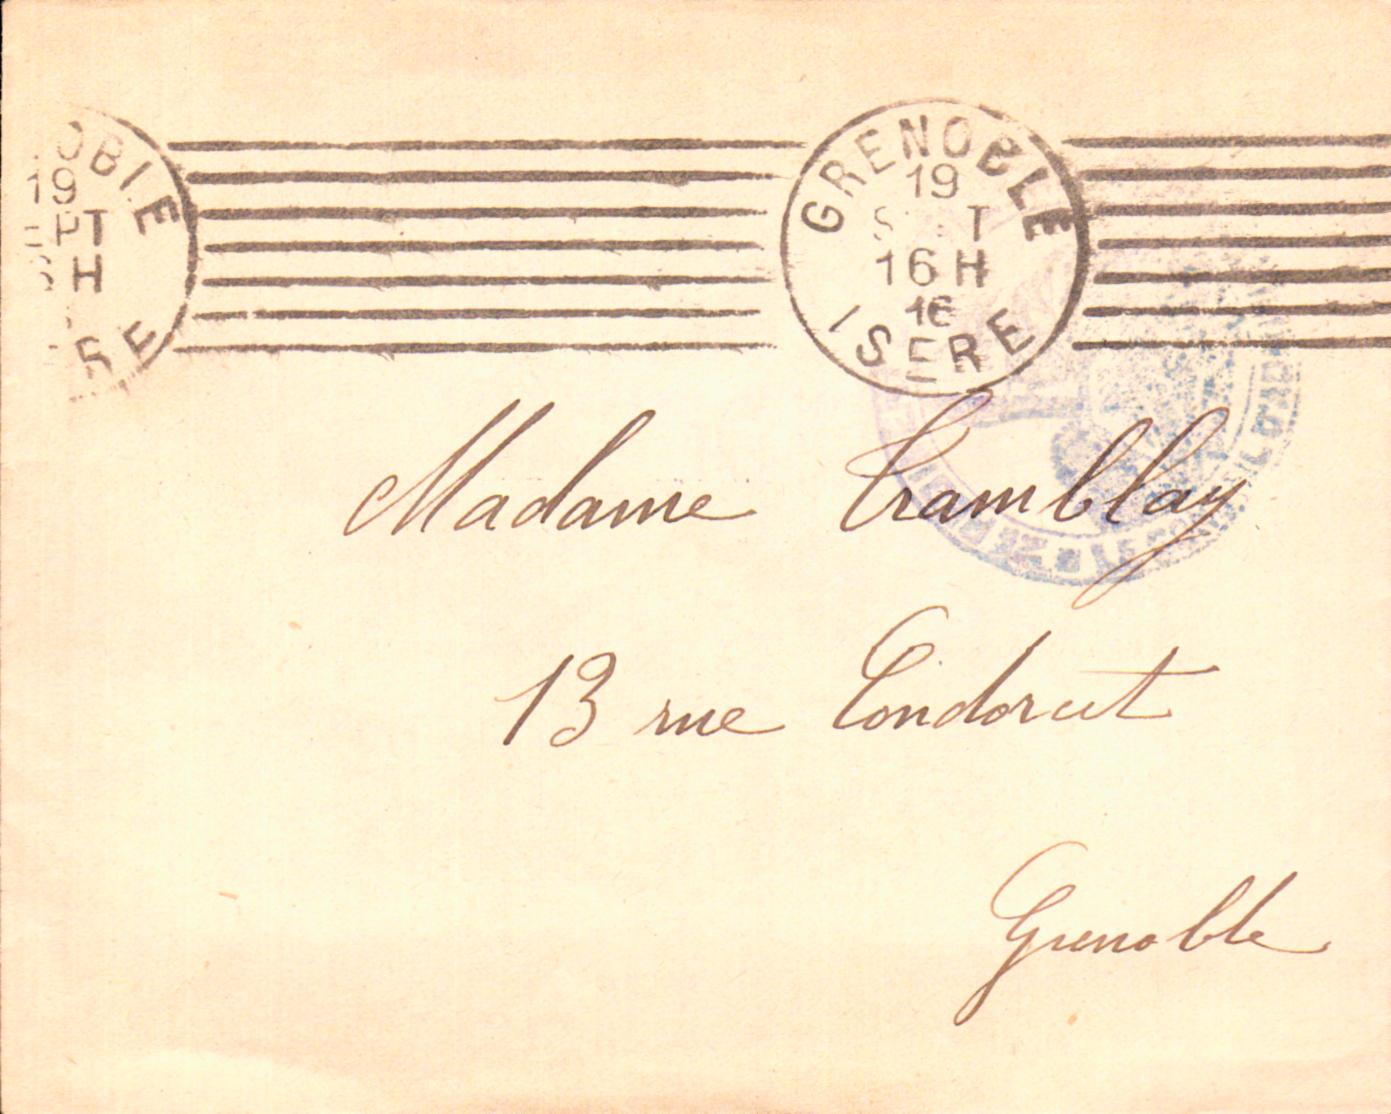 OBLE
19
PT
H
RE
GRENOBLE
19
S T
16 H
16
ISERE
Madame Tramblay
13 rue Condorcet
Grenoble